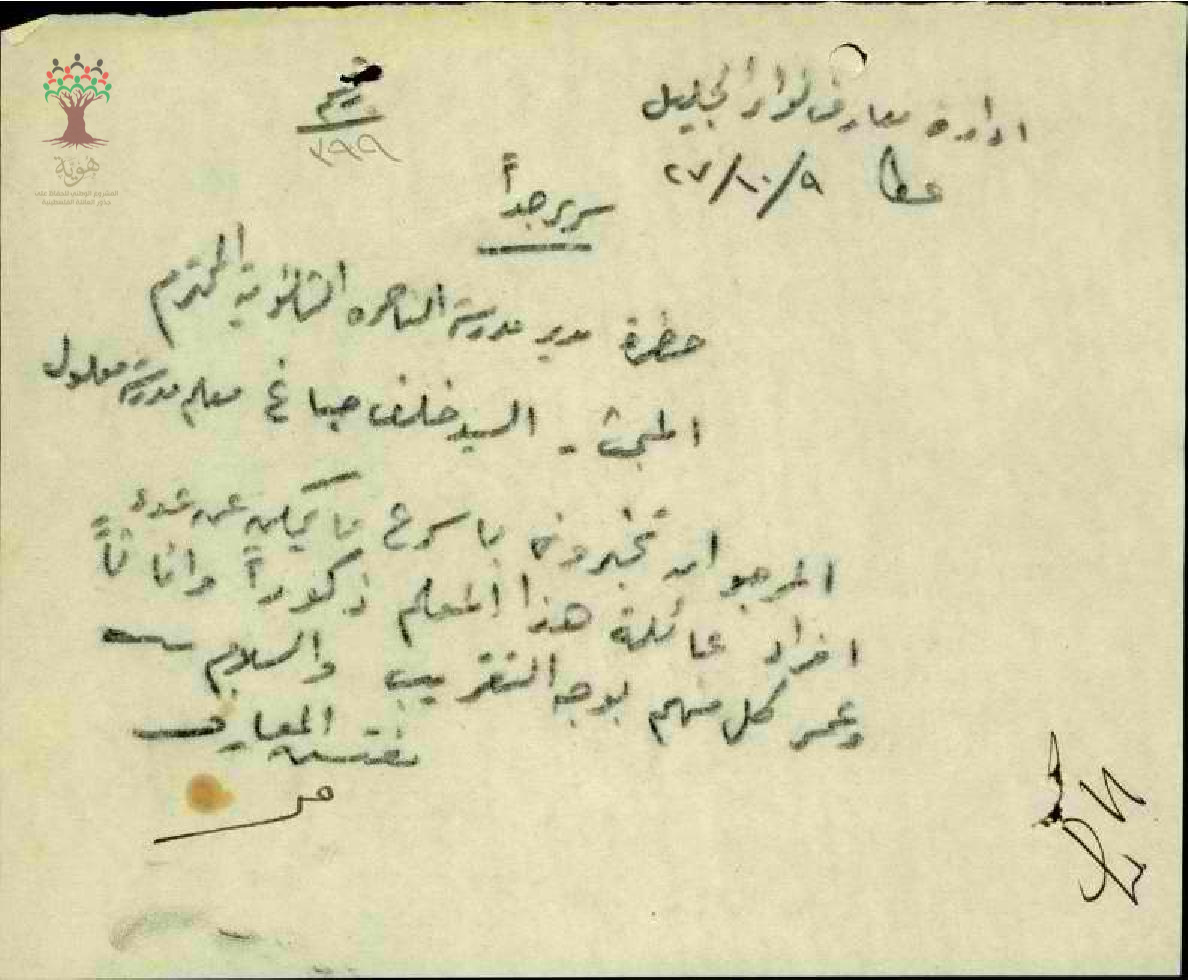 هوية
المشروع الوطني للحفاظ على
جذور العائلة الفلسطينية
ادارة معارف لواء الجليل
عكا ٩/١٠/٢٧
٣٩٩
سري جداً
حضرة مدير مدرسة الناصره الثانوية المحترم
المبحث - السيد خلف صباغ معلم مدرسة معلول
المرجو ان تخبروني باسرع ما يمكن عن عدد
افراد عائلة هذا المعلم ذكوراً واناثاً
وعمر كل منهم بوجه التقريب والسلام
مفتش المعارف